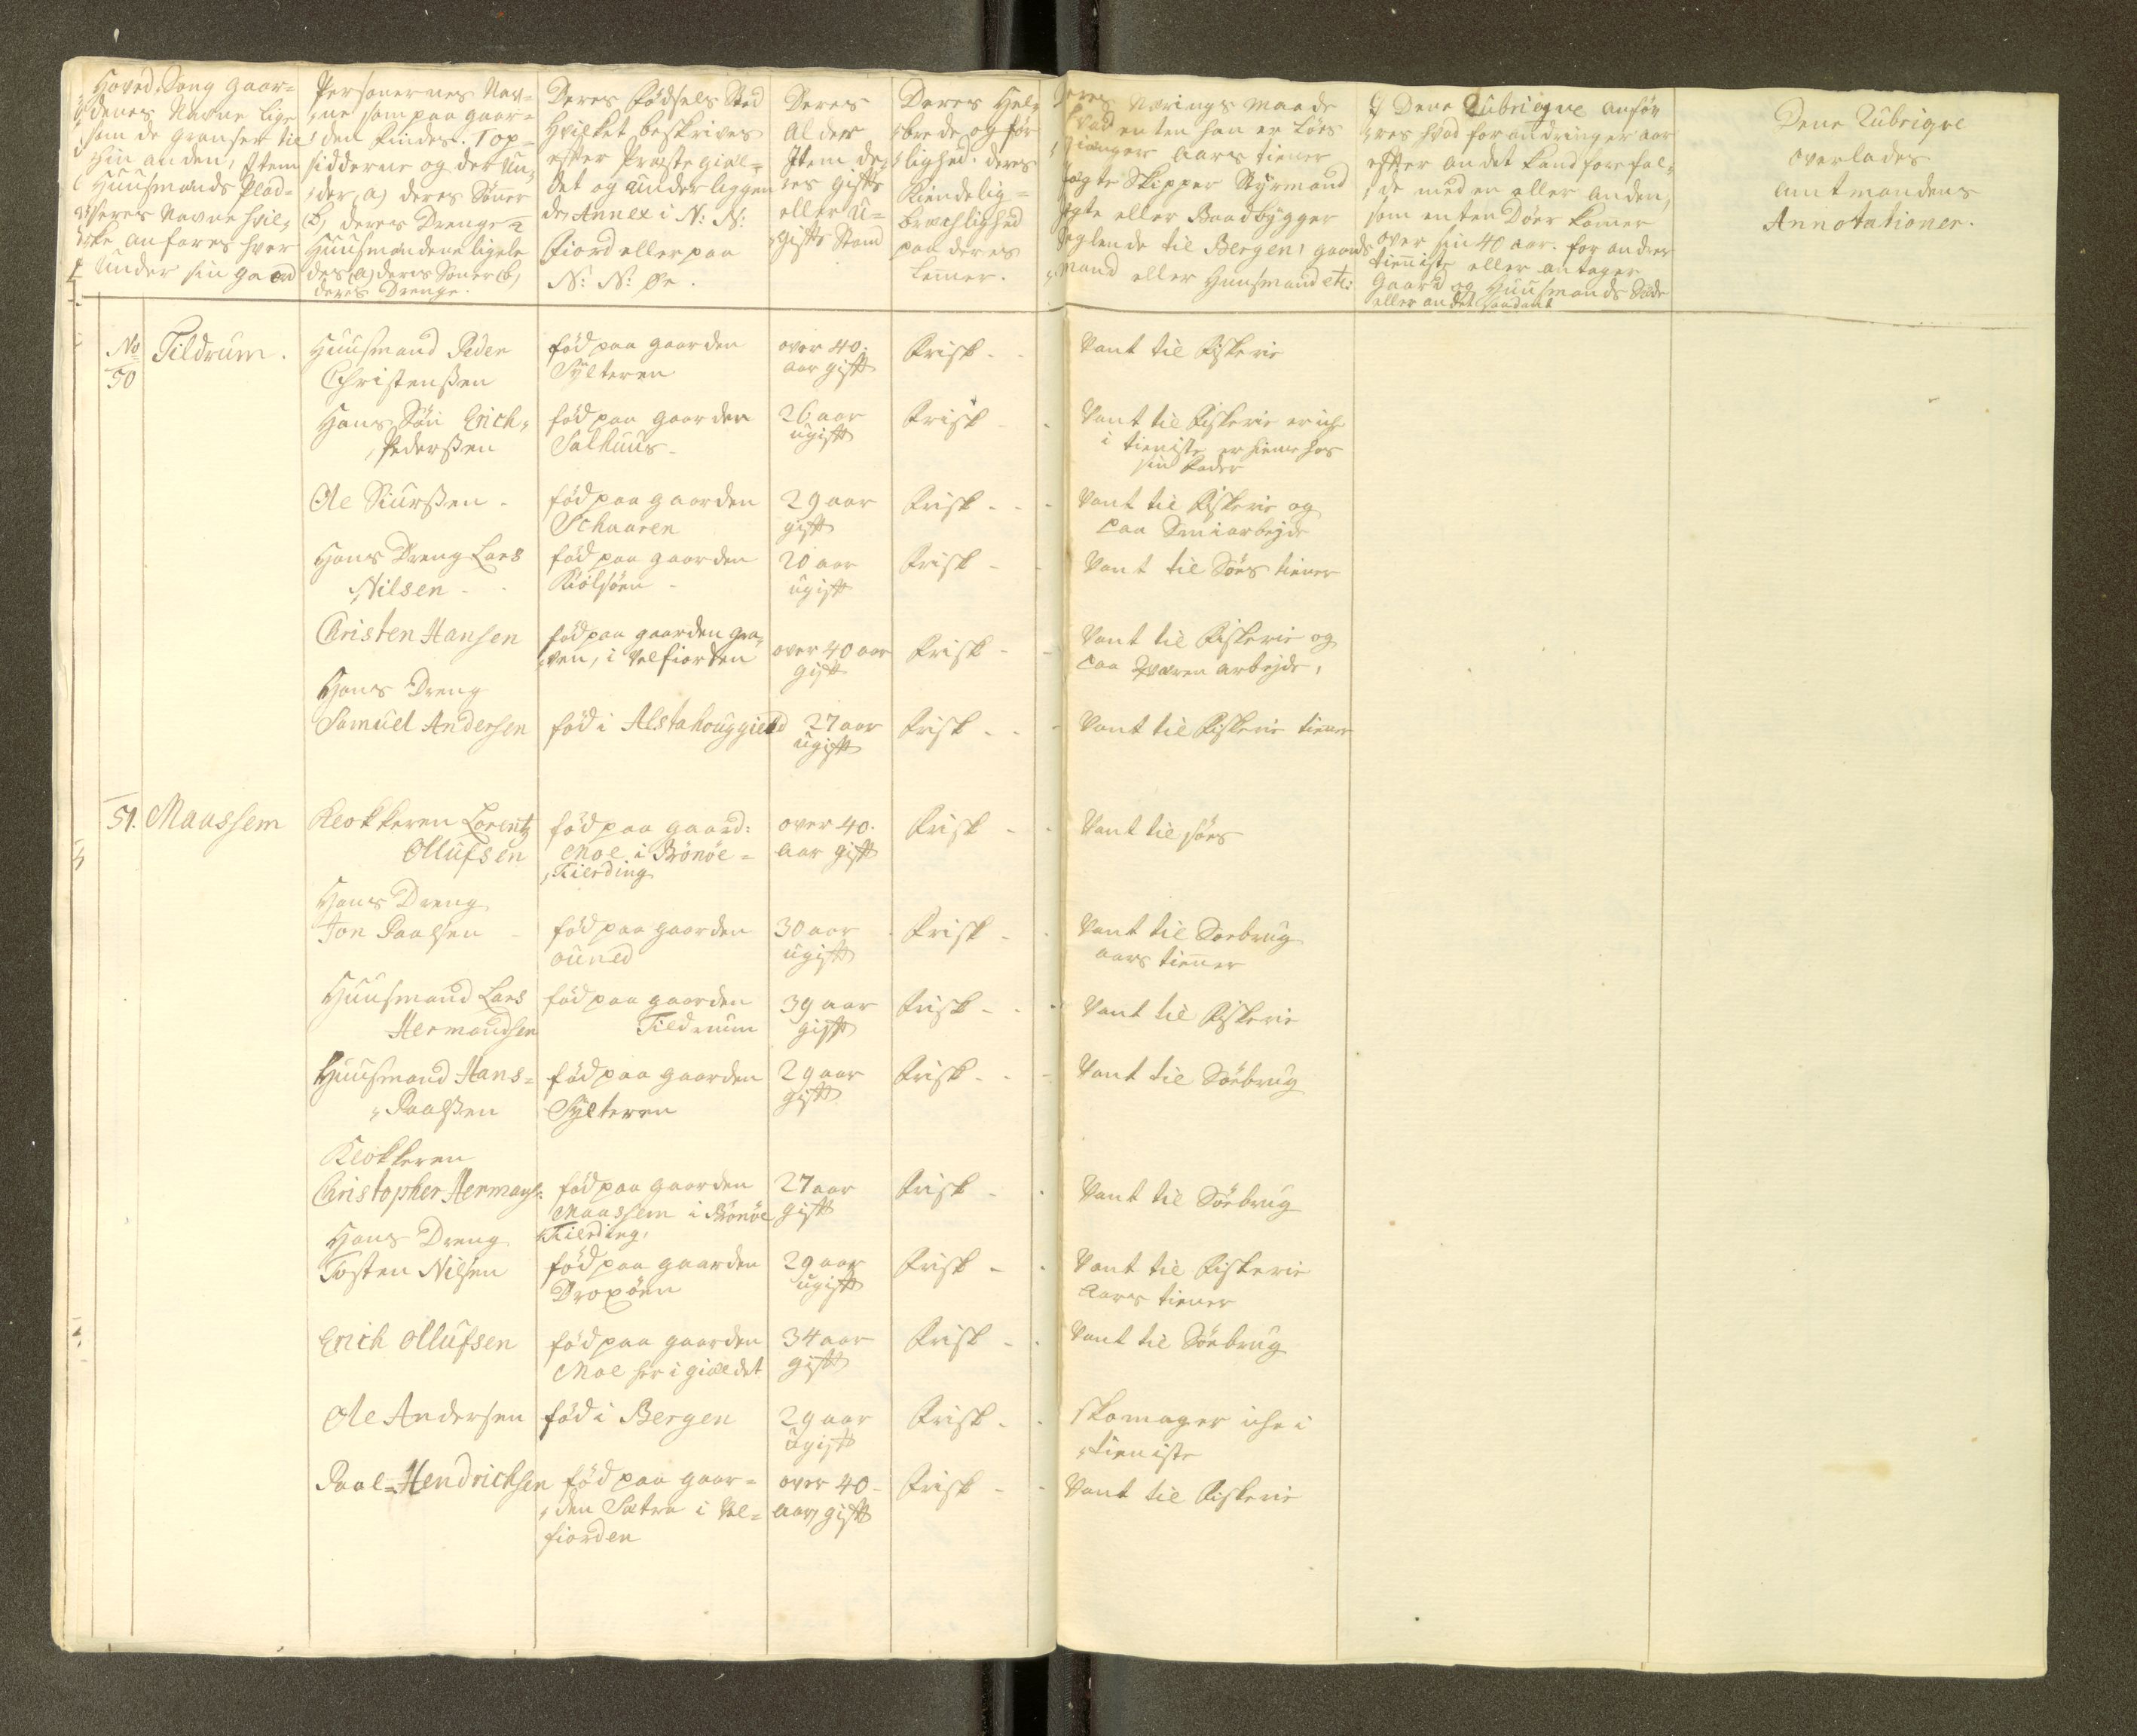 Hoved Song gaar=
denes Navne lige
som de grænser til
hin anden, Item
Huusmands Plad=
sernes Navne hvil,
ke anføres hver
under sin gaard
Personernes Nav=
ne som paa gaar=
den findes. Top=
sidderne og der un,
der, a) deres Sønner
b, deres Drenge 2
Huusmændene ligele
des (a) deres Sønner (b)
deres Drenge.
Deres Fødsels Sted
hvilket beskrives
efter Præstegiæl=
det og underliggen
de Annex i N: N:
Fiord eller paa
N: N: Øe.
Deres
Alder
Item de,
res gifte
eller u=
gifte Stand
Deres Hel,
brede og før
lighed. deres
Kiendelig=
brøstlighed
paa deres
Lemer.
Deres Nærings Maade
hvad enten han er Løs
gienger Aars tiener
Jagte Skipper Styrmand
Jagte eller Baadbygger
Seglende til Bergen, gaards
mand eller Huusmand etc:
I Dene Rubriqve anfør
res hvad forandringer aar
efter andet kand forefal,
de med en eller anden,
som enten Døer komer
over sin 40 aar. forandrer
tienniste eller antager
Gaard og Huusmands Sæde
eller andet saadant
Dene Rubriqve
overlades
Amtmandens
Annotationer.
No
50
Tildrum.
Huusmand Peder
Christenssen
fød paa gaarden
Sÿlteren
over 40.
aar gift
Frisk - -
Vant til Fiskerie
Hans Søn Erich,
Pederssen
fød paa gaarden
Salhuus -
26 aar
ugift
Frisk - -
Vant til Fiskerie er iche
i tieniste er hieme hos
sin Fader
Ole Siurssen -
fød paa gaarden
Schaaren
29 aar
gift
Frisk - - -
Vant til Fiskerie og
paa Smiarbejde
Hans Dreng Lars
Nilsen - -
fød paa gaarden
Kiølsøen -
20 aar
ugift
Frisk - -
Vant til Søes tiener
Christen Hansen
fød paa gaarden Gra,
ven, i Velfiorden
over 40 aar
gift
Frisk - -
Vant til Fiskerie og
paa Qværn arbejde,
Hans Dreng
Samuel Andersen
fød i Alstahouggield
27 aar
ugift
Frisk - - -
Vant til Fiskerie tiener
51.
Maassem
Klokkeren Lorentz
Ollufsen
fød paa gaard:
Moe i Brønøe=
Fierding
over 40.
aar gift
Frisk - -
Vant til søes
Hans Dreng
Jon Paalsen -
fød paa gaarden
ouned
30 aar
ugift
Frisk - -
Vant til Søebrug
aars tienner
Huusmand Lars
Hermandsen
fød paa gaarden
Tildrum
39 aar
gift
Frisk - - -
Vant til Fiskerie
Huusmand Hans=
Paalssen
fød paa gaarden
Sÿlteren
29 aar
gift
Frisk - - -
Vant til Søebrug
Klokkeren
Christopher Hermans:
fød paa gaarden
Maassem i Brønøe
Fierding,
27 aar
gift
Frisk - -
Vant til Søebrug
Hans Dreng
Tosten Nilsen
fød paa gaarden
Dropøen
29 aar
ugift
Frisk - -
Vant til Fiskerie
Aars tiener
Erich Ollufsen
fød paa gaarden
Moe her i giældet
34 aar
gift
Frisk - -
Vant til Søebrug
Ole Andersen
fød i Bergen
29 aar
ugift
Frisk - -
skomager iche i
tieniste
Paal=Hendrichsen
fød paa gaar=
den Sætra i Vel=
fiorden
over 40 -
aar, gift
Frisk - -
Vant til Fiskerie